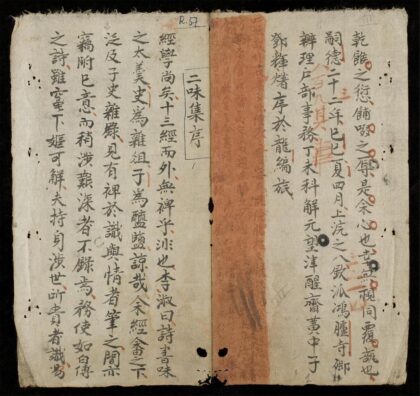 R.57
乾餱之愆餔啜之辱是余心也視同覆瓿也
嗣德二十二年己巳夏四月上浣之八欽派鴻臚寺卿
辦理戶部事務丁未科解元望津醒齋黃中子
鄧輝𤏸序於龍編旅
二味集序
經學尚矣十三經而外無裨乎非也李淑曰詩書味
之太羹史為雜俎子為醯醢諒哉余經畬之下
泛及子史雜錄見有裨於識與情者筆之間亦
竊附己意而稍涉艱深者不錄焉務使如白傅
之詩雖竈下嫗可解夫持身涉世所貴者識焉